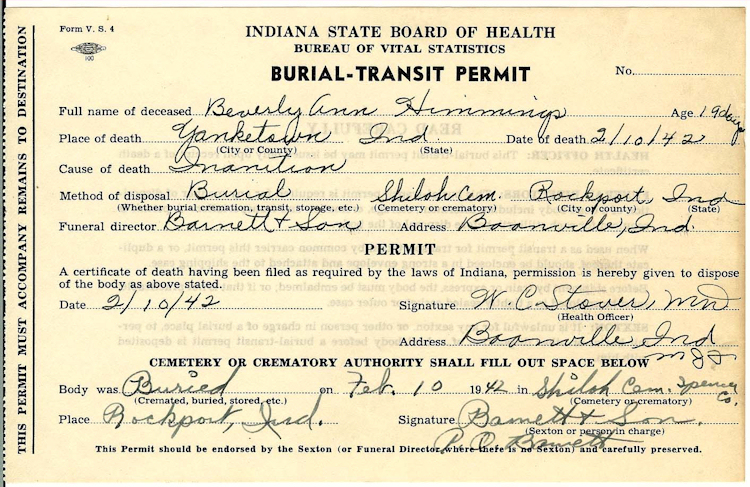 Form V. S. 4
100
INDIANA STATE BOARD OF HEALTH
BUREAU OF VITAL STATISTICS
BURIAL-TRANSIT PERMIT
No.
Full name of deceased Beverly Ann Himmings Age 19 days
Place of death Yanketown, Ind Date of death 2/10/42
(City or County) (State)
Cause of death Inanition
Method of disposal Burial Shiloh Cem. Rockport, Ind
(Whether burial cremation, transit, storage, etc.) (Cemetery or crematory) (City or county) (State)
Funeral director Barnett & Son Address Boonville, Ind.
PERMIT
A certificate of death having been filed as required by the laws of Indiana, permission is hereby given to dispose
of the body as above stated.
Date 2/10/42 Signature W. C. Stover, MD
(Health Officer)
Address Boonville, Ind
CEMETERY OR CREMATORY AUTHORITY SHALL FILL OUT SPACE BELOW
Body was Buried on Feb. 10 1942 in Shiloh Cem. Spencer Co.
(Cremated, buried, stored, etc.) (Cemetery or crematory)
Place Rockport, Ind. Signature Barnett & Son.
(Sexton or person in charge)
Barnett
This Permit should be endorsed by the Sexton (or Funeral Director where there is no Sexton) and carefully preserved.
THIS PERMIT MUST ACCOMPANY REMAINS TO DESTINATION